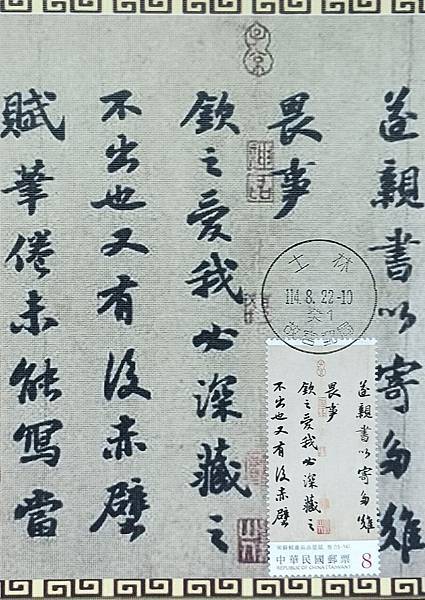 遂親書以寄多難
畏事
欽之愛我必深藏之
不出也又有後赤壁
賦筆倦未能寫當
士林
114.8.22-10
遂親書以寄多難
畏事
欽之愛我必深藏之
不出也又有後赤壁
中華民國郵票
REPUBLIC OF CHINA (TAIWAN)
8